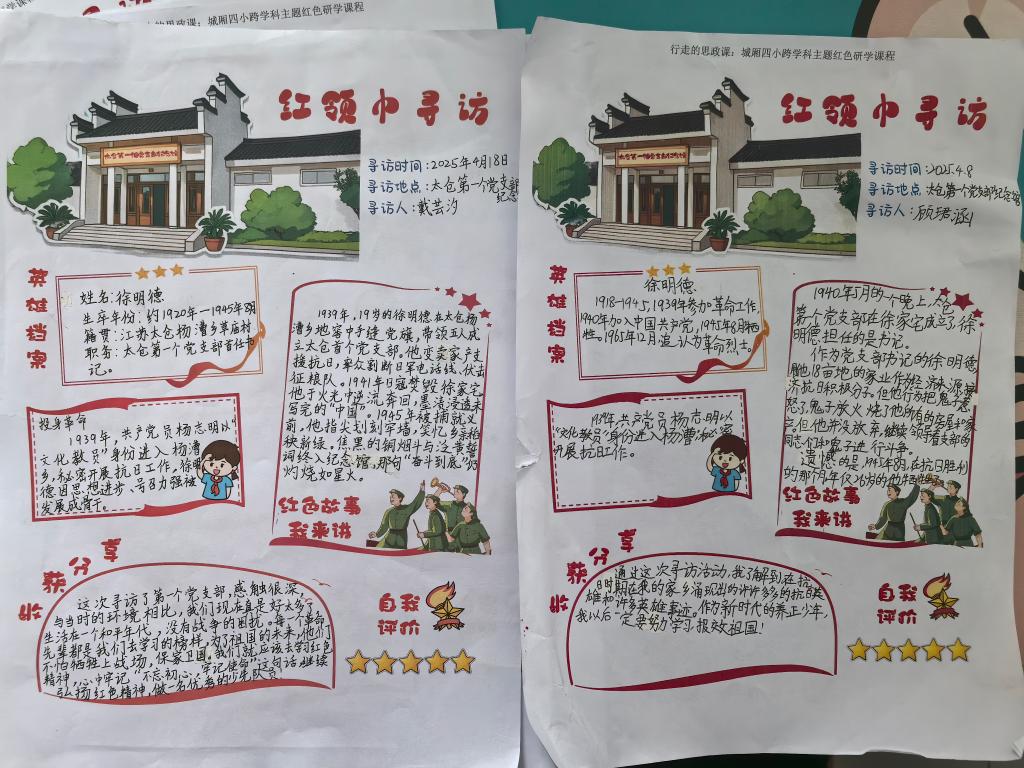 的思政课：城厢四小跨学科主题红色研学课程
红领巾寻访
太仓第一个党支部纪念馆
寻访时间：2025年4月18日
寻访地点：太仓第一个党支部
纪念
寻访人：戴芸汐
英雄档案
姓名：徐明德
生卒年份：约1920年一1945年8月
籍贯：江苏太仓杨漕乡草庙村
职务：太仓第一个党支部首任书
记。
投身革命
1939年，共产党员杨志明以
“文化教员”身份进入杨漕
乡，秘密开展抗日工作。徐明
德因思想进步、号召力强被
发展成骨干。
1939年，19岁的徐明德在太仓杨
漕乡地窖中手缝党旗，带领五人成
立太仓首个党支部。他变卖家产支
援抗日，率众割断日军电话线、伏击
征粮队。1941年日寇焚毁徐家宅
他于火光中逆流奔回，墨流浸透未
写完的“中国”。1945年被捕就义
前，他指尖划刻牢墙，笑忆乡亲稻
秧新绿。焦黑的铜烟斗与泛黄誓
词终入纪念馆，那句“奋斗到底”仍
灼烧如星火。
红色故事
我来讲
收获分享
这次寻访了第一个党支部，感触很深，
与当时的环境相比，我们现在真是好太多了，
生活在一个和平年代，没有战争的困扰。每个革命
先辈都是我们去学习的榜样，为了祖国的未来，他们
不怕牺牲上战场，保家卫国，我们就应该去学习红色
精神，心中牢记“不忘初心，牢记使命”这句话，继续
弘扬红色精神，做一名优秀的少先队员。
自我
评价
行走的思政课：城厢四小跨学科主题红色研学课程
红领巾寻访
太仓第一个党支部纪念馆
寻访时间：2025.4.8
寻访地点：太仓第一个党支部纪念馆
寻访人：顾珺涵
英雄档案
徐明德
1918-1945，1939年参加革命工作，
1940年加入中国共产党，1945年8月牺
牲。1965年12月追认为革命烈士。
1939年，共产党员杨志明以
“文化教员”身份进入杨漕，秘密
开展抗日工作。
1940年5月的一个晚上，太仓
第一个党支部在徐家宅成立，徐
明德担任的是书记。
作为党支部书记的徐明德，
他18亩地的家业作为经济来源，接
济抗日积极分子。但他行为把鬼子惹
怒了，鬼子放火烧了他所有的房屋和家
具，但他并没放弃，继续领导着支部的
同志们和鬼子进行斗争。
遗憾的是，1945年8月，在抗日胜利
的那个月年仅26岁的他牺牲了。
红色故事
我来讲
收获分享
通过这次寻访活动，我了解到在抗
日时期在我的家乡涌现出的许许多多的抗日英
雄和许多英雄事迹。作为新时代的养正少年，
我以后一定要努力学习，报效祖国！
自我
评价